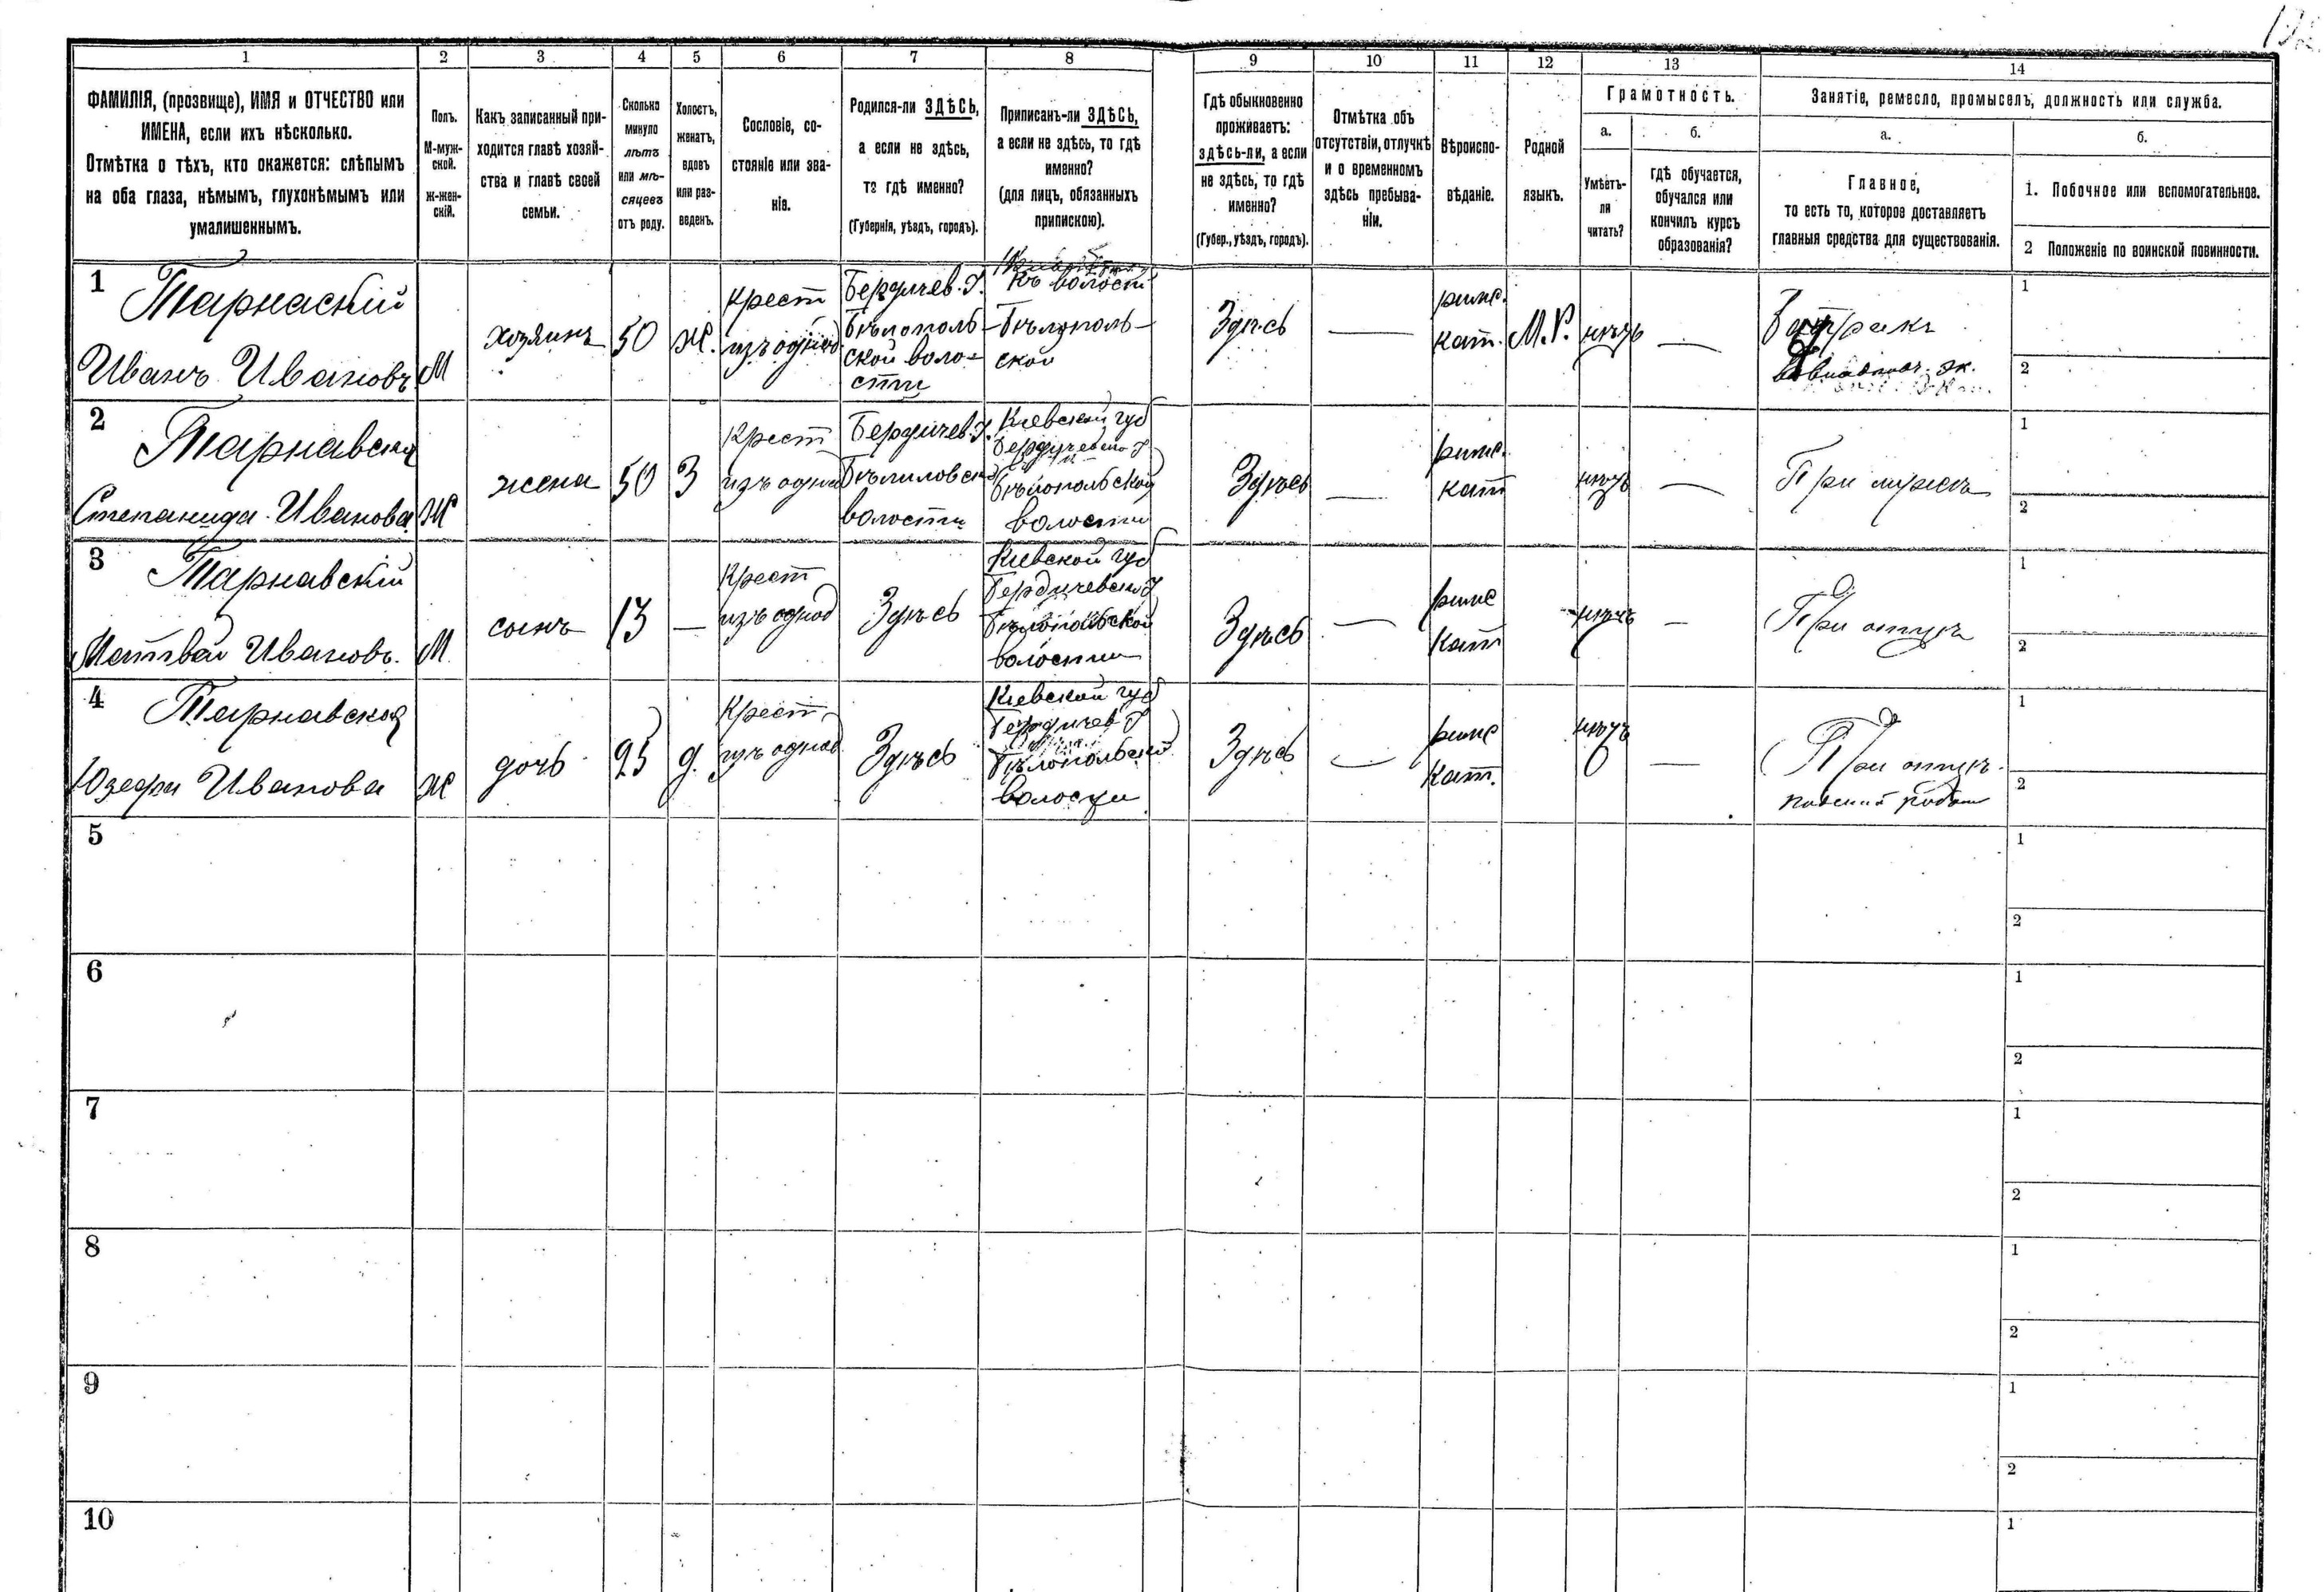 1
2
3
4
5
6
7
8
9
10
11
12
13
14
ФАМИЛІЯ, (прозвище), ИМЯ и ОТЧЕСТВО или
ИМЕНА, если ихъ нѣсколько.
Отмѣтка о тѣхъ, кто окажется: слѣпымъ
на оба глаза, нѣмымъ, глухонѣмымъ или
умалишеннымъ.
Полъ.
М-муж-
ской.
ж-жен-
скій.
Какъ записанный при-
ходится главѣ хозяй-
ства и главѣ своей
семьи.
Сколько
минуло
лѣтъ
или мѣ-
сяцевъ
отъ роду.
Холостъ,
женатъ,
вдовъ
или раз-
веденъ.
Сословіе, со-
стояніе или зва-
ніе.
Родился-ли ЗДѢСЬ,
а если не здѣсь,
то гдѣ именно?
(Губернія, уѣздъ, городъ).
Приписанъ-ли ЗДѢСЬ,
а если не здѣсь, то гдѣ
именно?
(для лицъ, обязанныхъ
припискою).
Гдѣ обыкновенно
проживаетъ:
здѣсь-ли, а если
не здѣсь, то гдѣ
именно?
(Губер., уѣздъ, городъ).
Отмѣтка объ
отсутствіи, отлучкѣ
и о временномъ
здѣсь пребыва-
ніи.
Вѣроиспо-
вѣданіе.
Родной
языкъ.
Грамотность.
а.
Умѣетъ-
ли
читать?
б.
гдѣ обучается,
обучался или
кончилъ курсъ
образованія?
Занятіе, ремесло, промыселъ, должность или служба.
а.
Главное,
то есть то, которое доставляетъ
главныя средства для существованія.
б.
1. Побочное или вспомогательное.
2 Положеніе по воинской повинности.
1
Тарнаскій
Иванъ Ивановъ
М
хозяинъ
50
Ж.
Крест
изъ однод
Бердичев. У.
Бѣлополь-
ской воло-
сти
къ волости
Бѣлополь-
ской
Здѣсь
—
римс.
кат.
М.Р.
нѣтъ
—
Батракъ
эк.
1
2
2
Тарнавская
Степанида Иванова
Ж
жена
50
З
Крест
изъ однод
Бердичев. У.
волости
Кіевской губ
Бердичевско У
Бѣлопольской
волости
Здѣсь
—
римс.
кат
нѣтъ
—
При мужѣ
1
2
3
Тарнавскій
Матвѣй Ивановъ.
М.
сынъ
13
—
Крест
изъ однод
Здѣсь
Кіевской губ
Бердичевско У
Бѣлопольской
волости
Здѣсь
—
римс
кат
нѣтъ
—
При отцѣ
1
2
4
Тарнавская
Юзефа Иванова
Ж
дочь
25
д.
Крест
изъ однод
Здѣсь
Кіевской губ
Бердичев У
Бѣлопольской
волости
Здѣсь
—
римс
кат.
нѣтъ
—
При отцѣ.
1
2
5
1
2
6
1
2
7
1
2
8
1
2
9
1
2
10
1